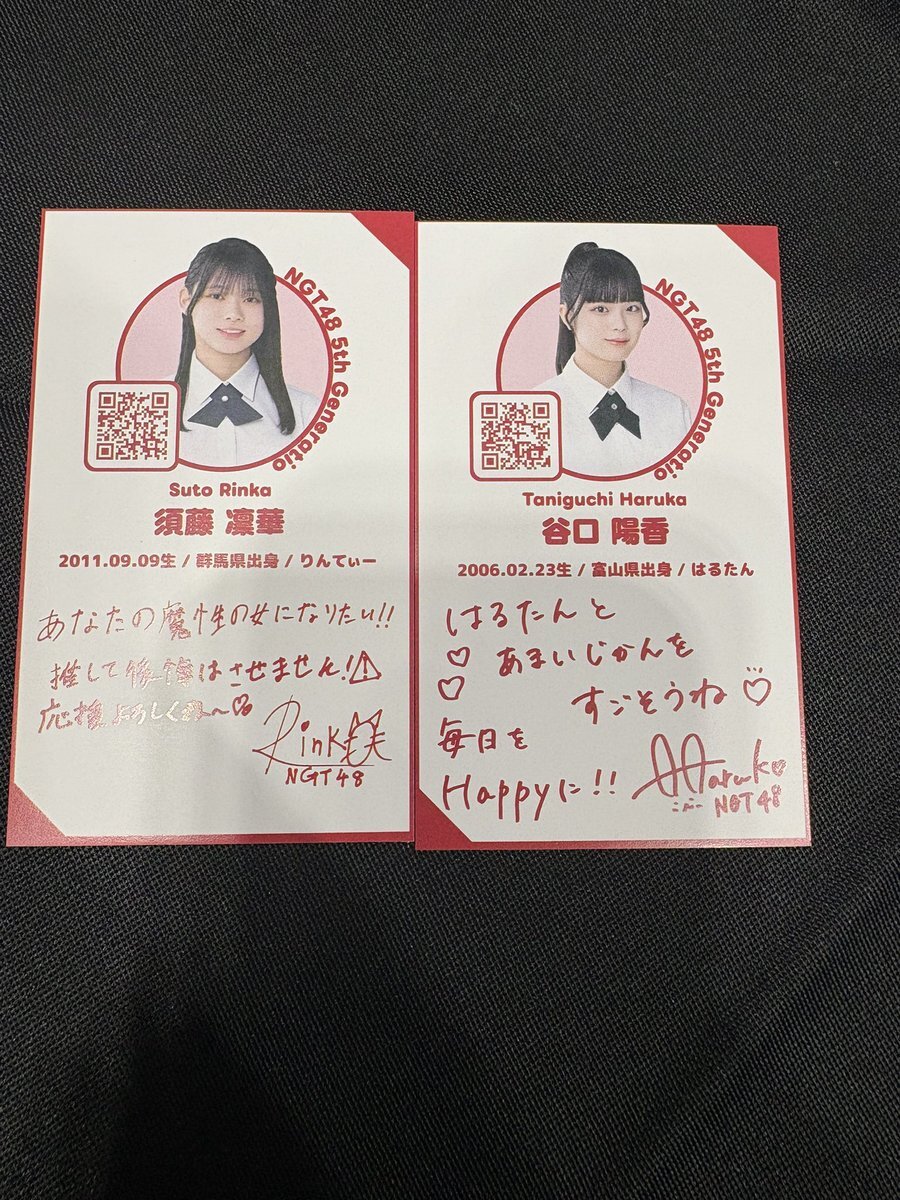 NGT48 5th Generatio
Suto Rinka
須藤 凛華
2011.09.09生 / 群馬県出身 / りんてぃー
あなたの魔性の女になりたい!!
推して後悔はさせません!⚠
応援よろしくね〜♡
Rink
NGT48
NGT48 5th Generatio
Taniguchi Haruka
谷口 陽香
2006.02.23生 / 富山県出身 / はるたん
はるたんと
♡ あまいじかんを
♡ すごそうね♡
毎日を
Happyに!!
Haruka
NGT48